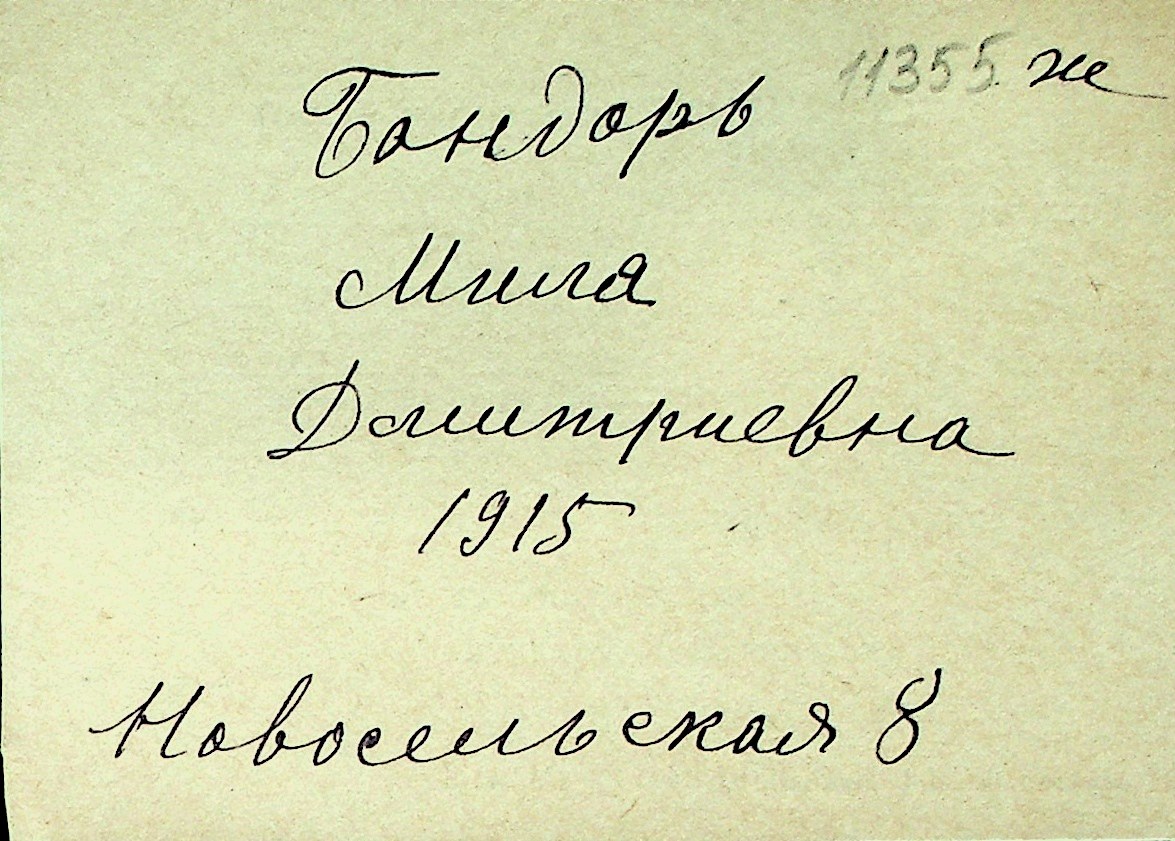 11355 ж
Бондорь
Миля
Дмитриевна
1915
Новосельская 8